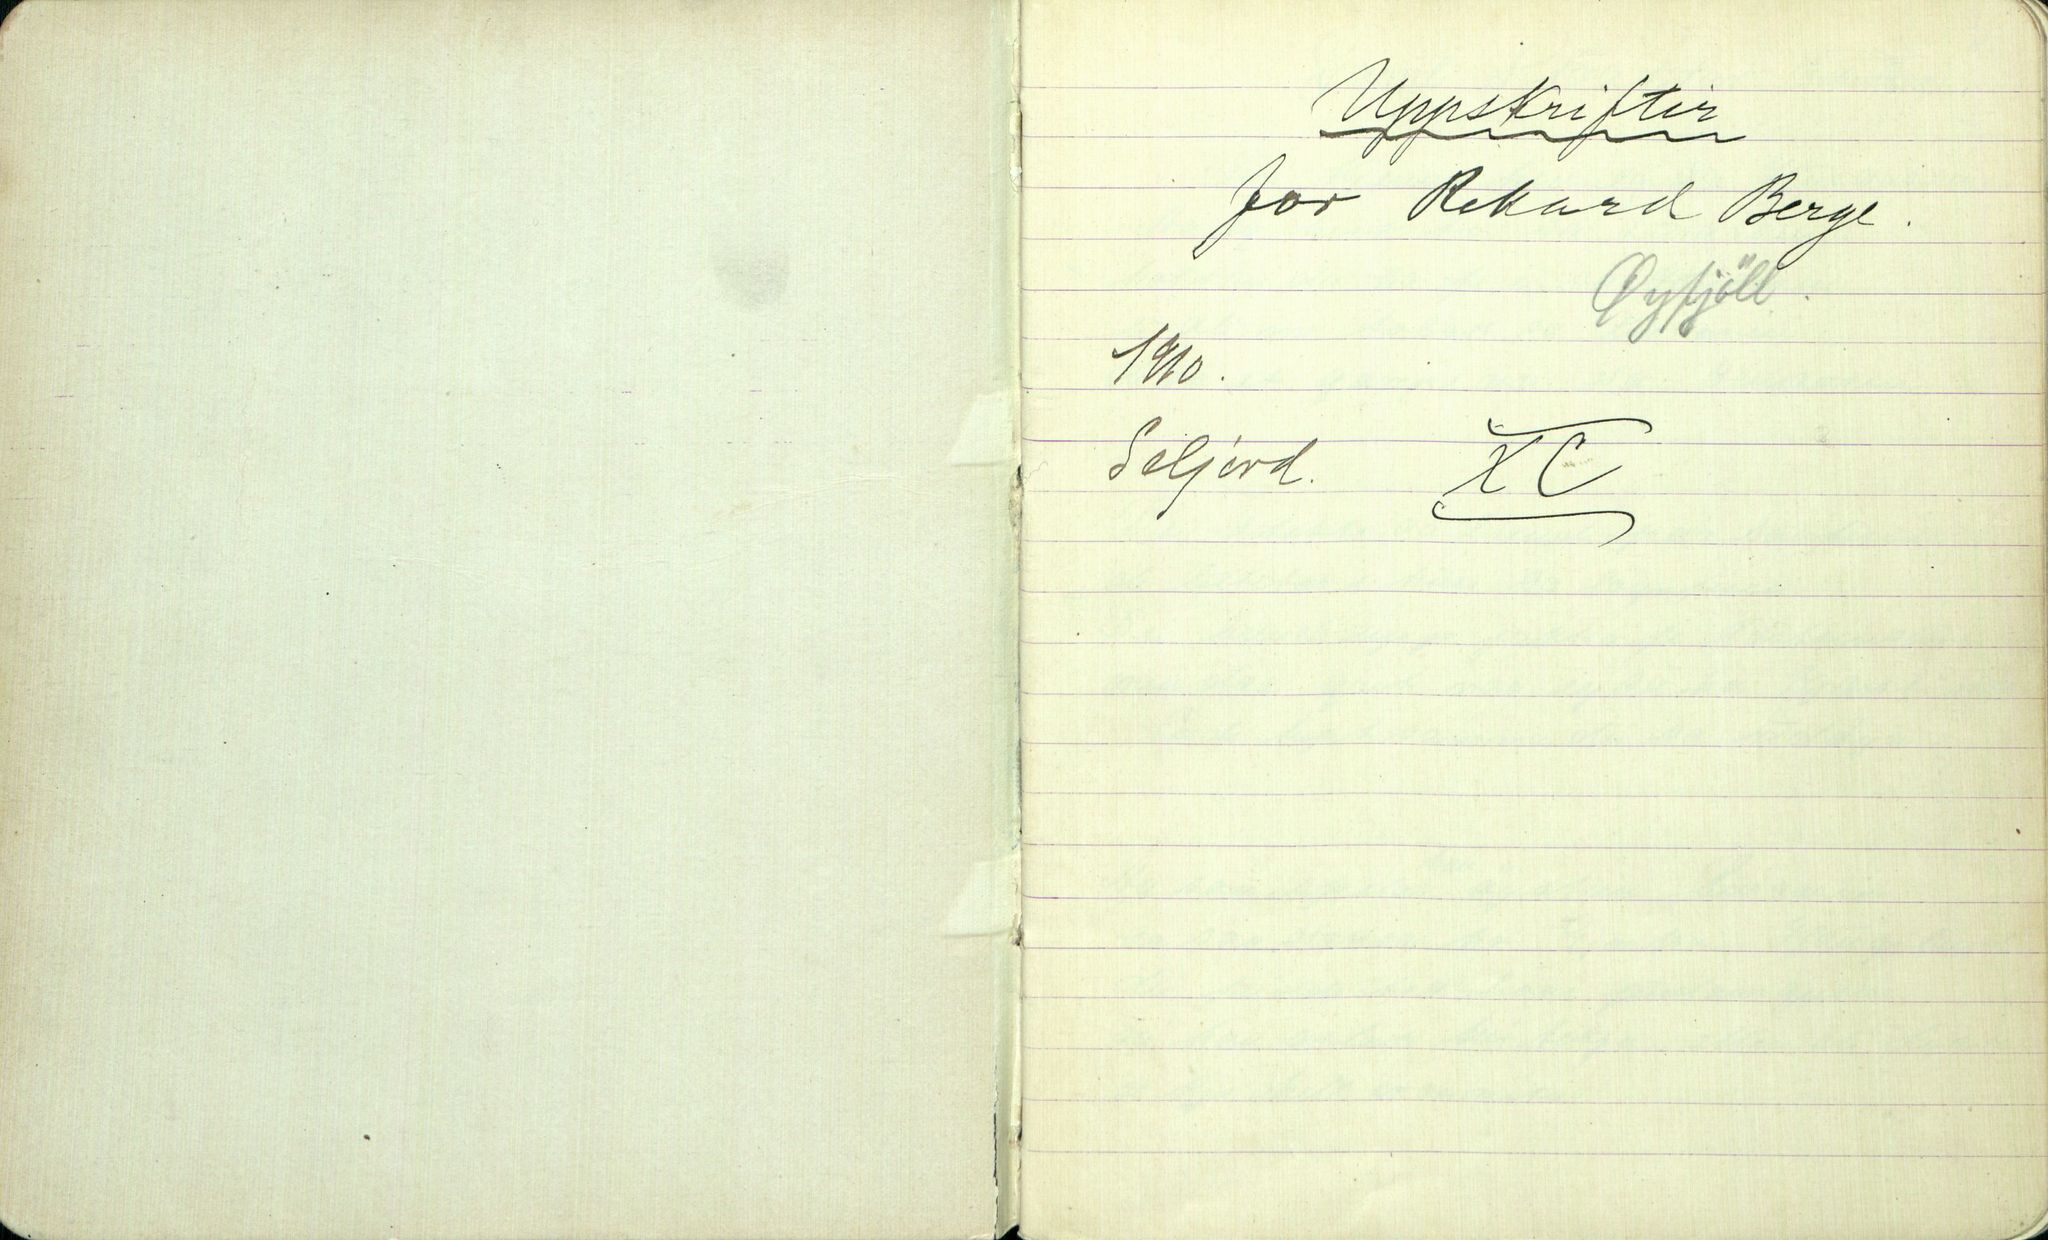 Uppskriftir
for Rikard Berge.
Øyfjöll.
1910.
Seljord. XC